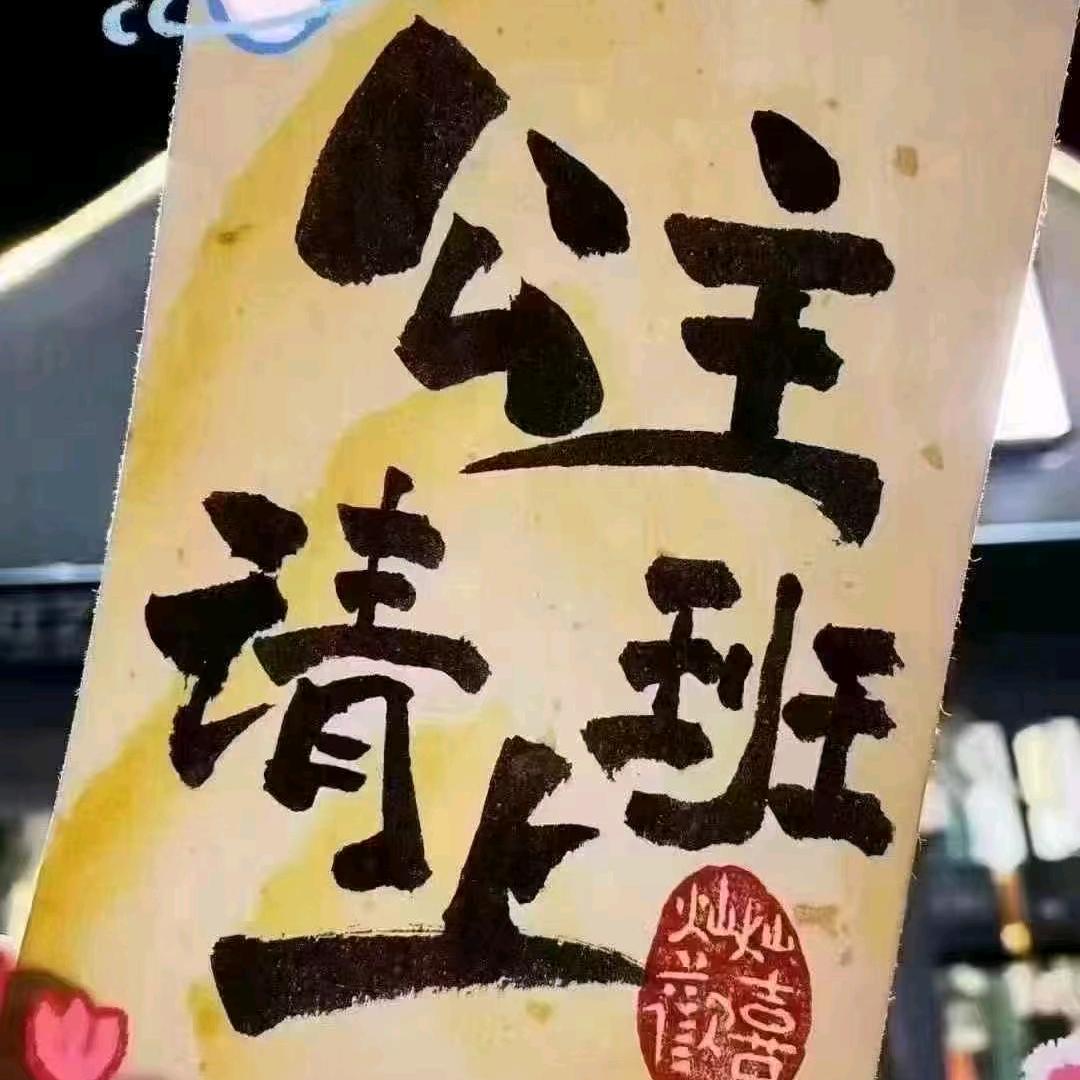 公主
请上班